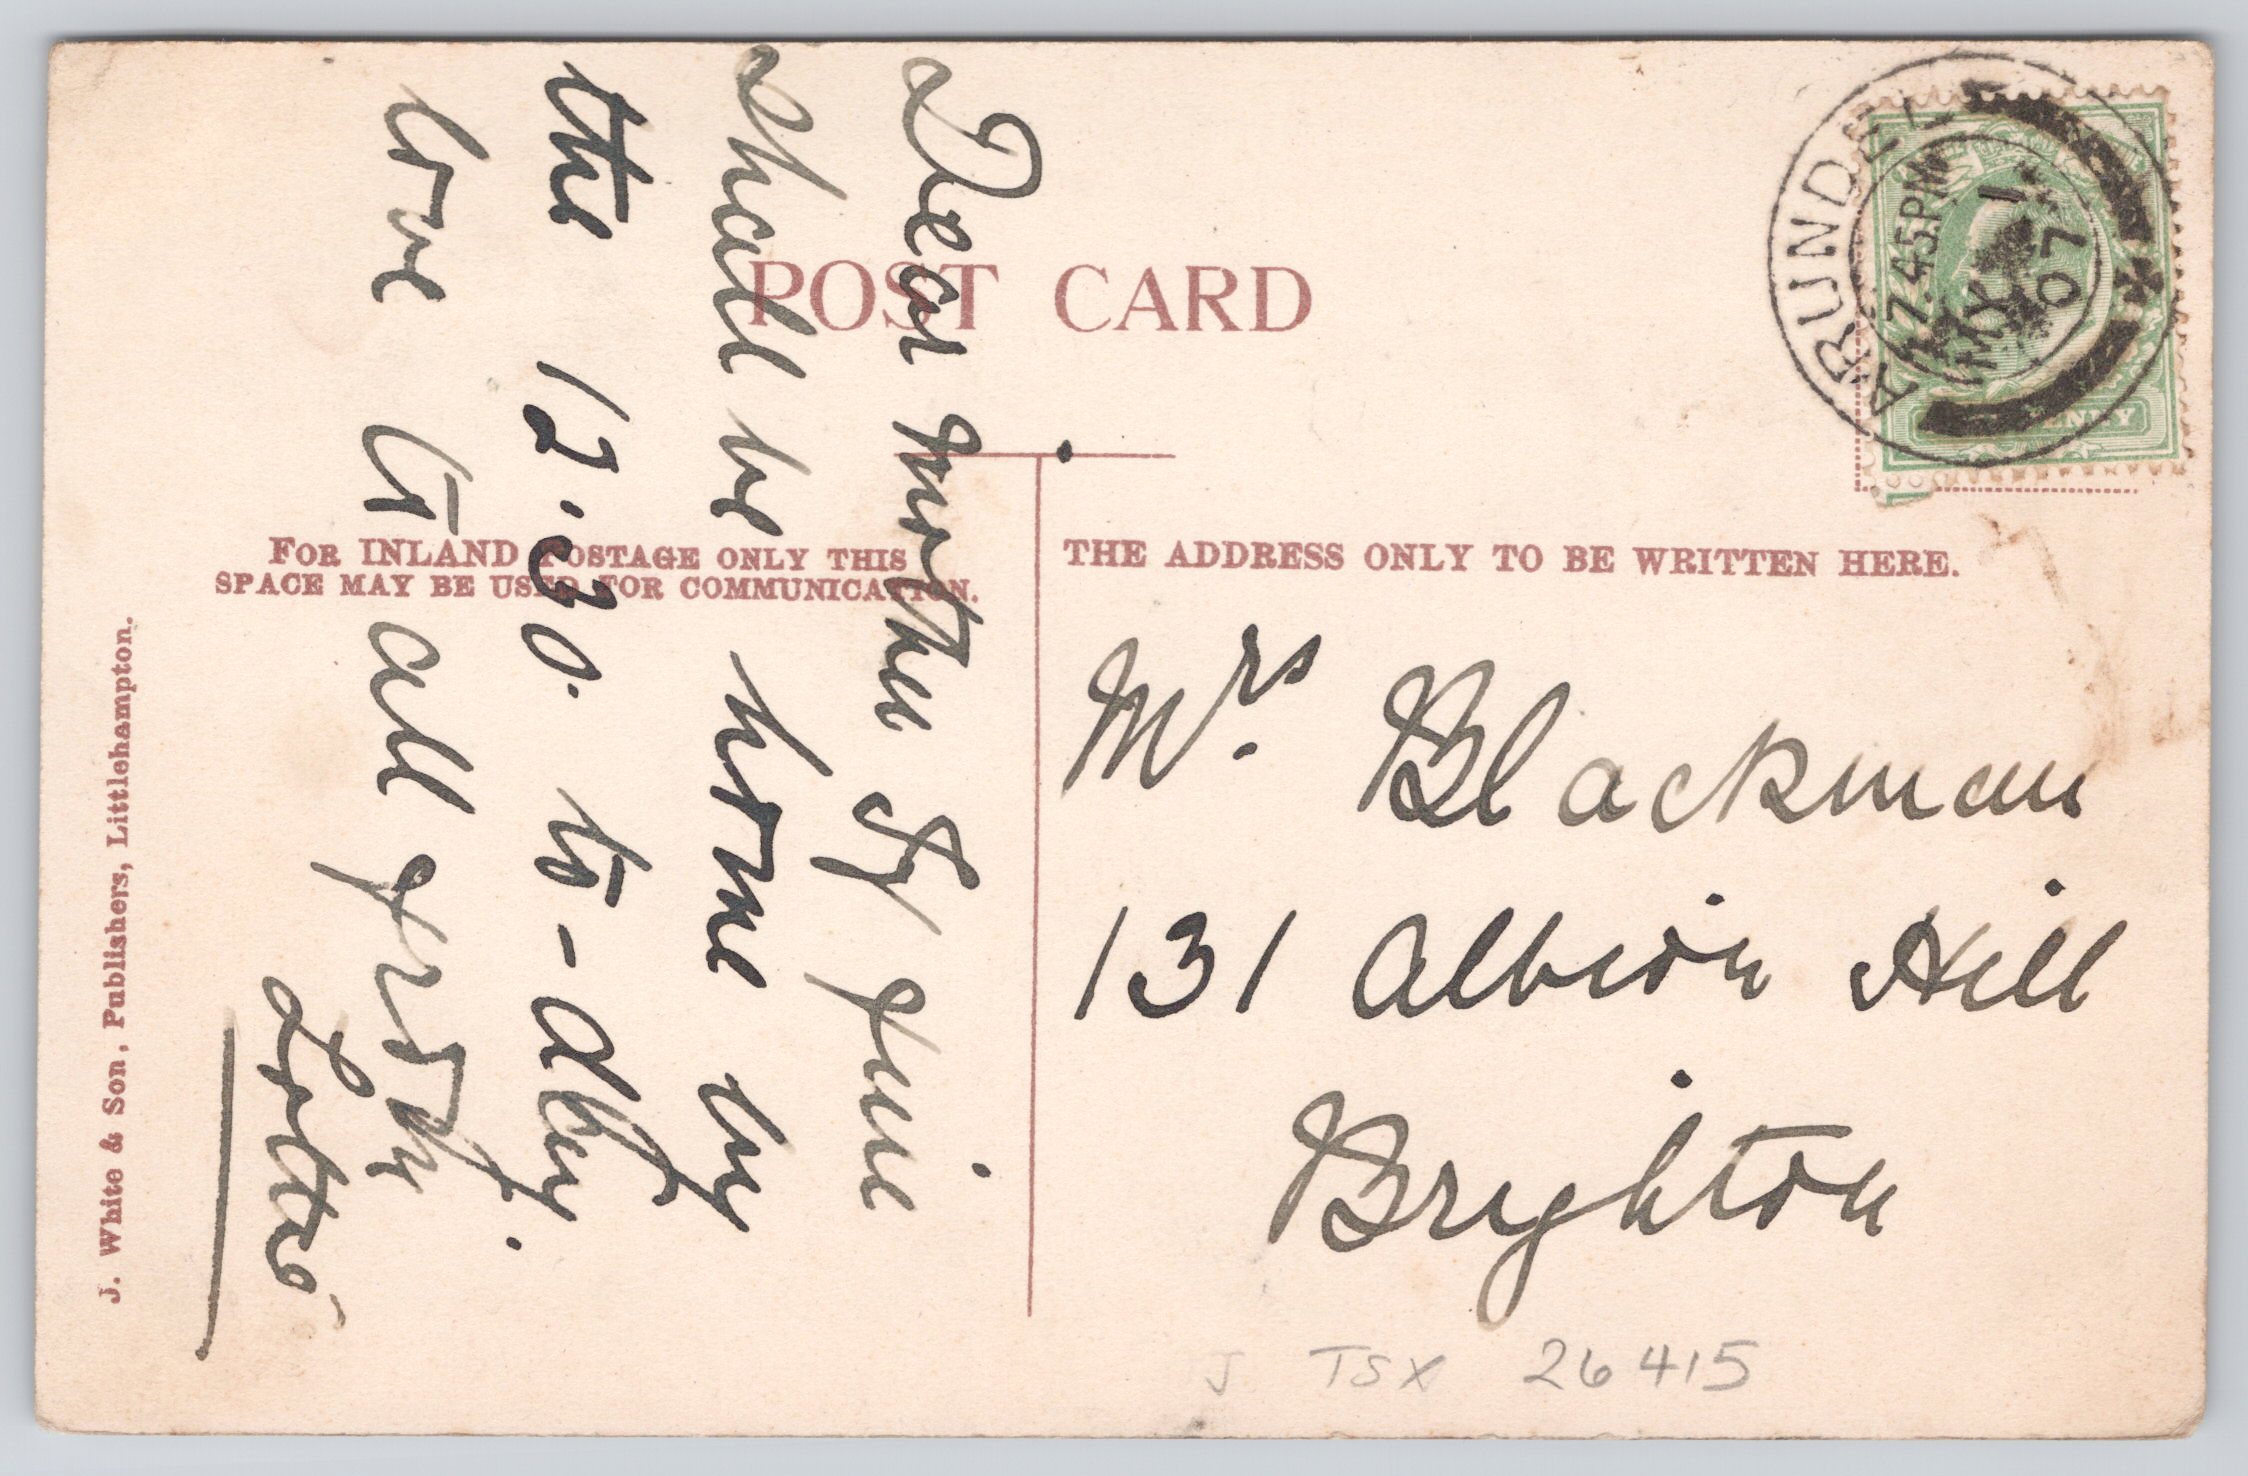 POST CARD
FOR INLAND POSTAGE ONLY THIS
SPACE MAY BE USED FOR COMMUNICATION.
THE ADDRESS ONLY TO BE WRITTEN HERE.
Dear mother If fine
shall be home by
the 12.30. to-day.
love to all from
Lottie
Mrs. Blackman
131 Albion Hill
Brighton
ARUNDEL
7.45PM
MY 1
07
J. White & Son, Publishers, Littlehampton.
J TSX 26415